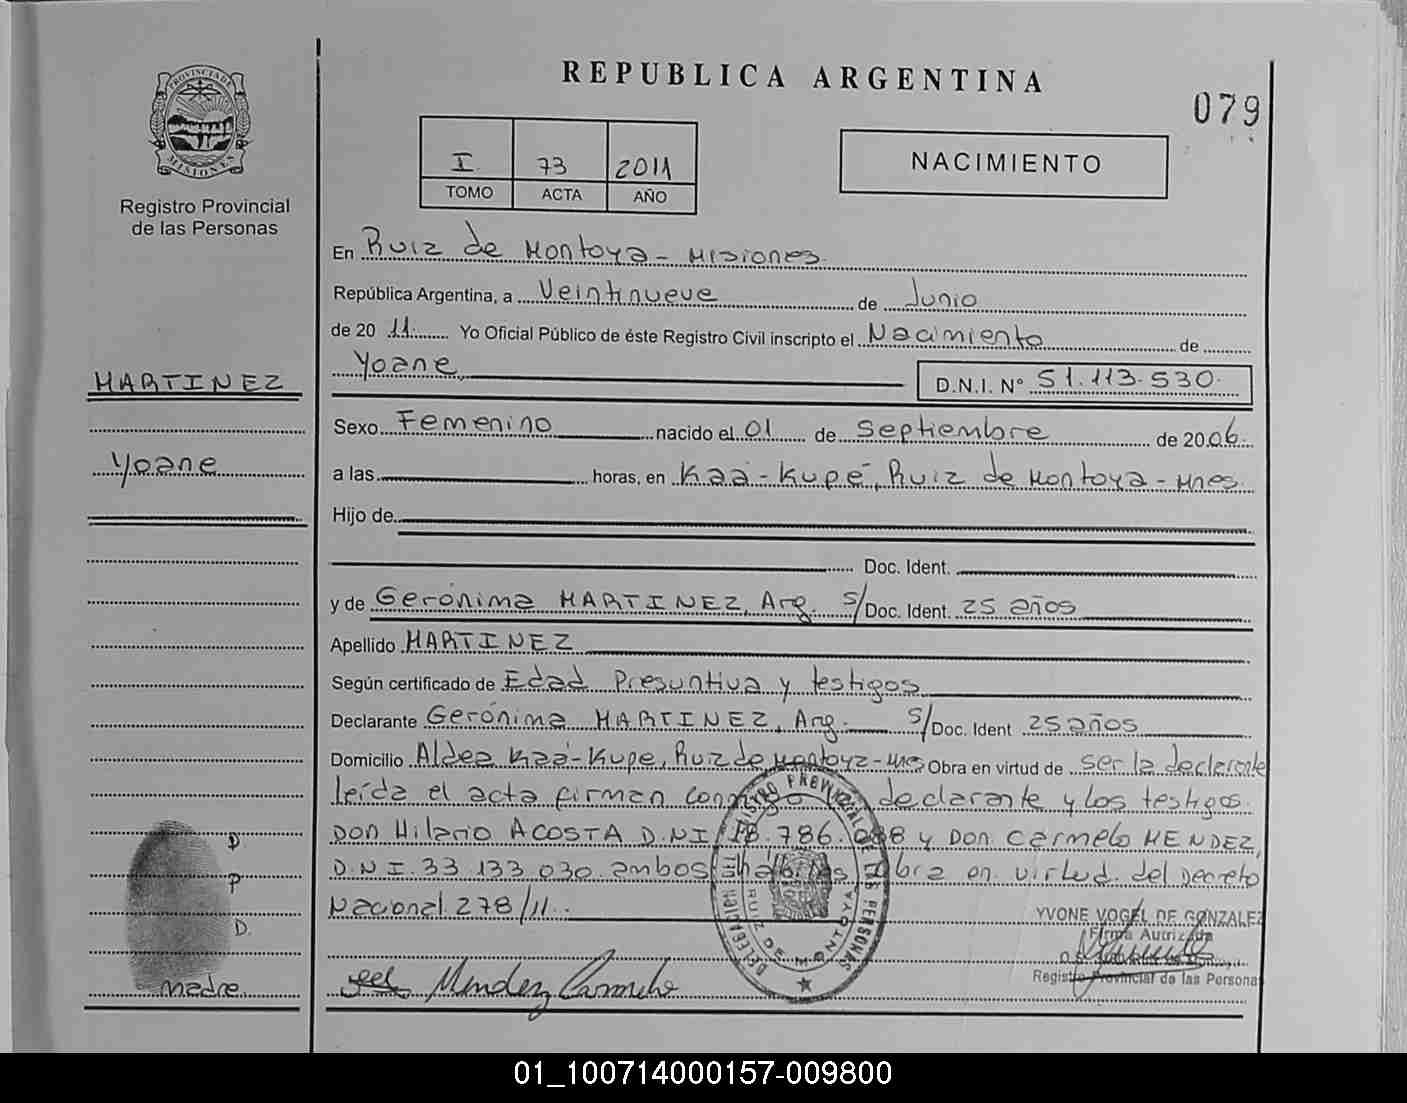 REPUBLICA ARGENTINA
079
PROVINCIA DE MISIONES
Registro Provincial
de las Personas
I 73 2011
TOMO ACTA AÑO
NACIMIENTO
En Ruiz de Montoya - Misiones
República Argentina, a Veintinueve de Junio
de 20 11 Yo Oficial Público de éste Registro Civil inscripto el Nacimiento de
Yoane D.N.I. N° 51.113.530
MARTINEZ
Yoane
Sexo Femenino nacido el 01 de Septiembre de 2006
a las horas, en Kaá-Kupé, Ruiz de Montoya - Mnes.
Hijo de
Doc. Ident.
y de Gerónima MARTINEZ, Arg. S/Doc. Ident. 25 años
Apellido MARTINEZ
Según certificado de Edad Presuntiva y testigos
Declarante Gerónima MARTINEZ, Arg. S/Doc. Ident 25 años
Domicilio Aldea Kaá-Kupe, Ruiz de Montoya - Mnes Obra en virtud de ser la declarante
leída el acta firman declarante y los testigos.
Don Hilario ACOSTA D.N.I. 18.786.088 y Don Carmelo MENDEZ,
D.N.I. 33.133.030 ambos hábiles Obra en virtud del Decreto
Nacional 278/11.
D
P
D.
madre
DELEGACION DEL REGISTRO PROVINCIAL DE LAS PERSONAS
RUIZ DE MONTOYA
YVONE VOGEL DE GONZALEZ
Firma Autrizada
Registro Provincial de las Persona
Mendez Carmelo
01_100714000157-009800